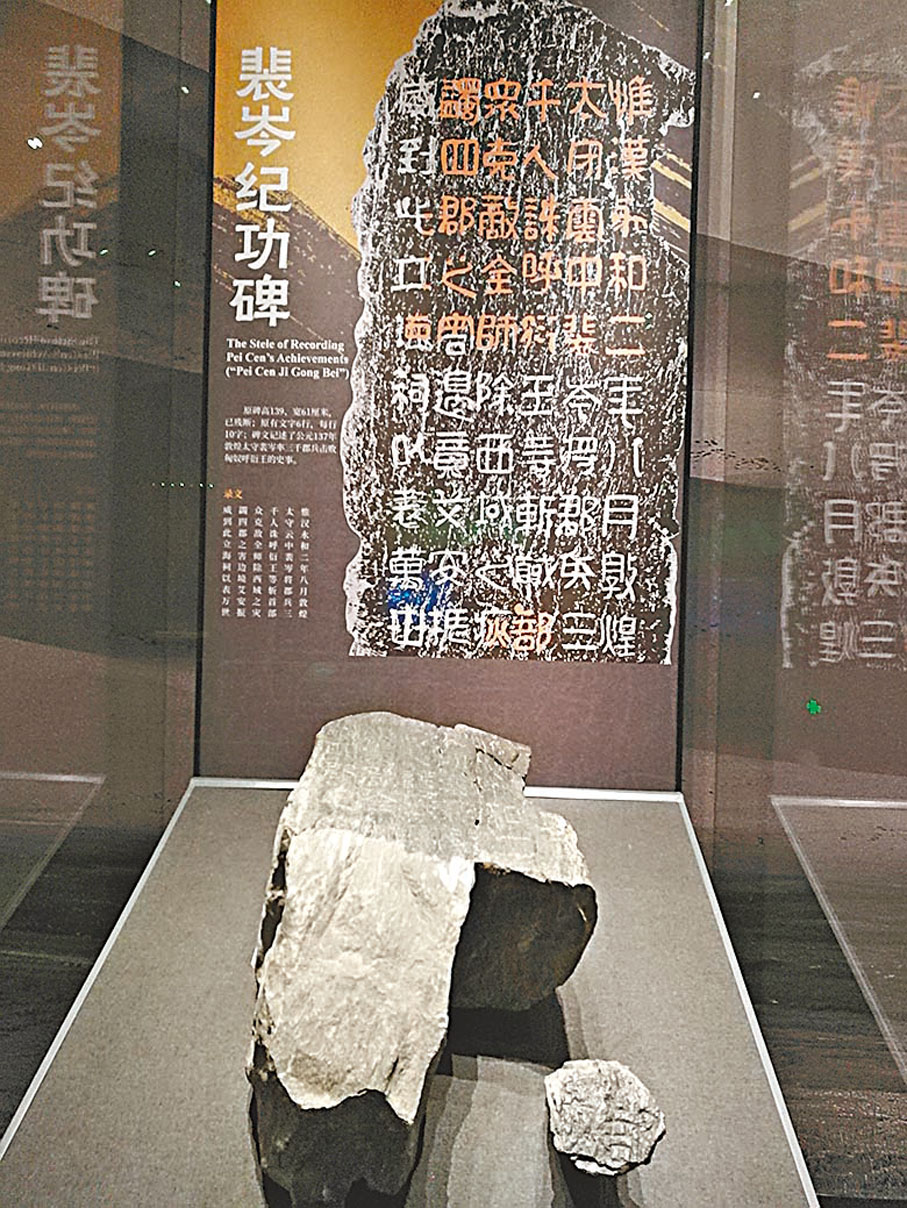 裴岑纪功碑
The Stele of Recording
Pei Cen's Achievements
("Pei Cen Ji Gong Bei")
原碑高139、宽61厘米，
已残断；原有文字6行，每行
10字；碑文记述了公元137年
敦煌太守裴岑率三千郡兵击败
匈奴呼衍王的史事。
录文
惟汉永和二年八月敦煌
太守云中裴岑将郡兵三
千人诛呼衍王等斩首部
众克敌全师除西域之灾
蠲四郡之害边境艾安振
威到此立海祠以表万世
惟漢永和二年八月敦煌
太守雲中裴岑將郡兵三
千人誅呼衍王等斬馘部
衆克敵全師除西域之疢
蠲四郡之害邊竟艾安振
威到此立海祠以表萬世